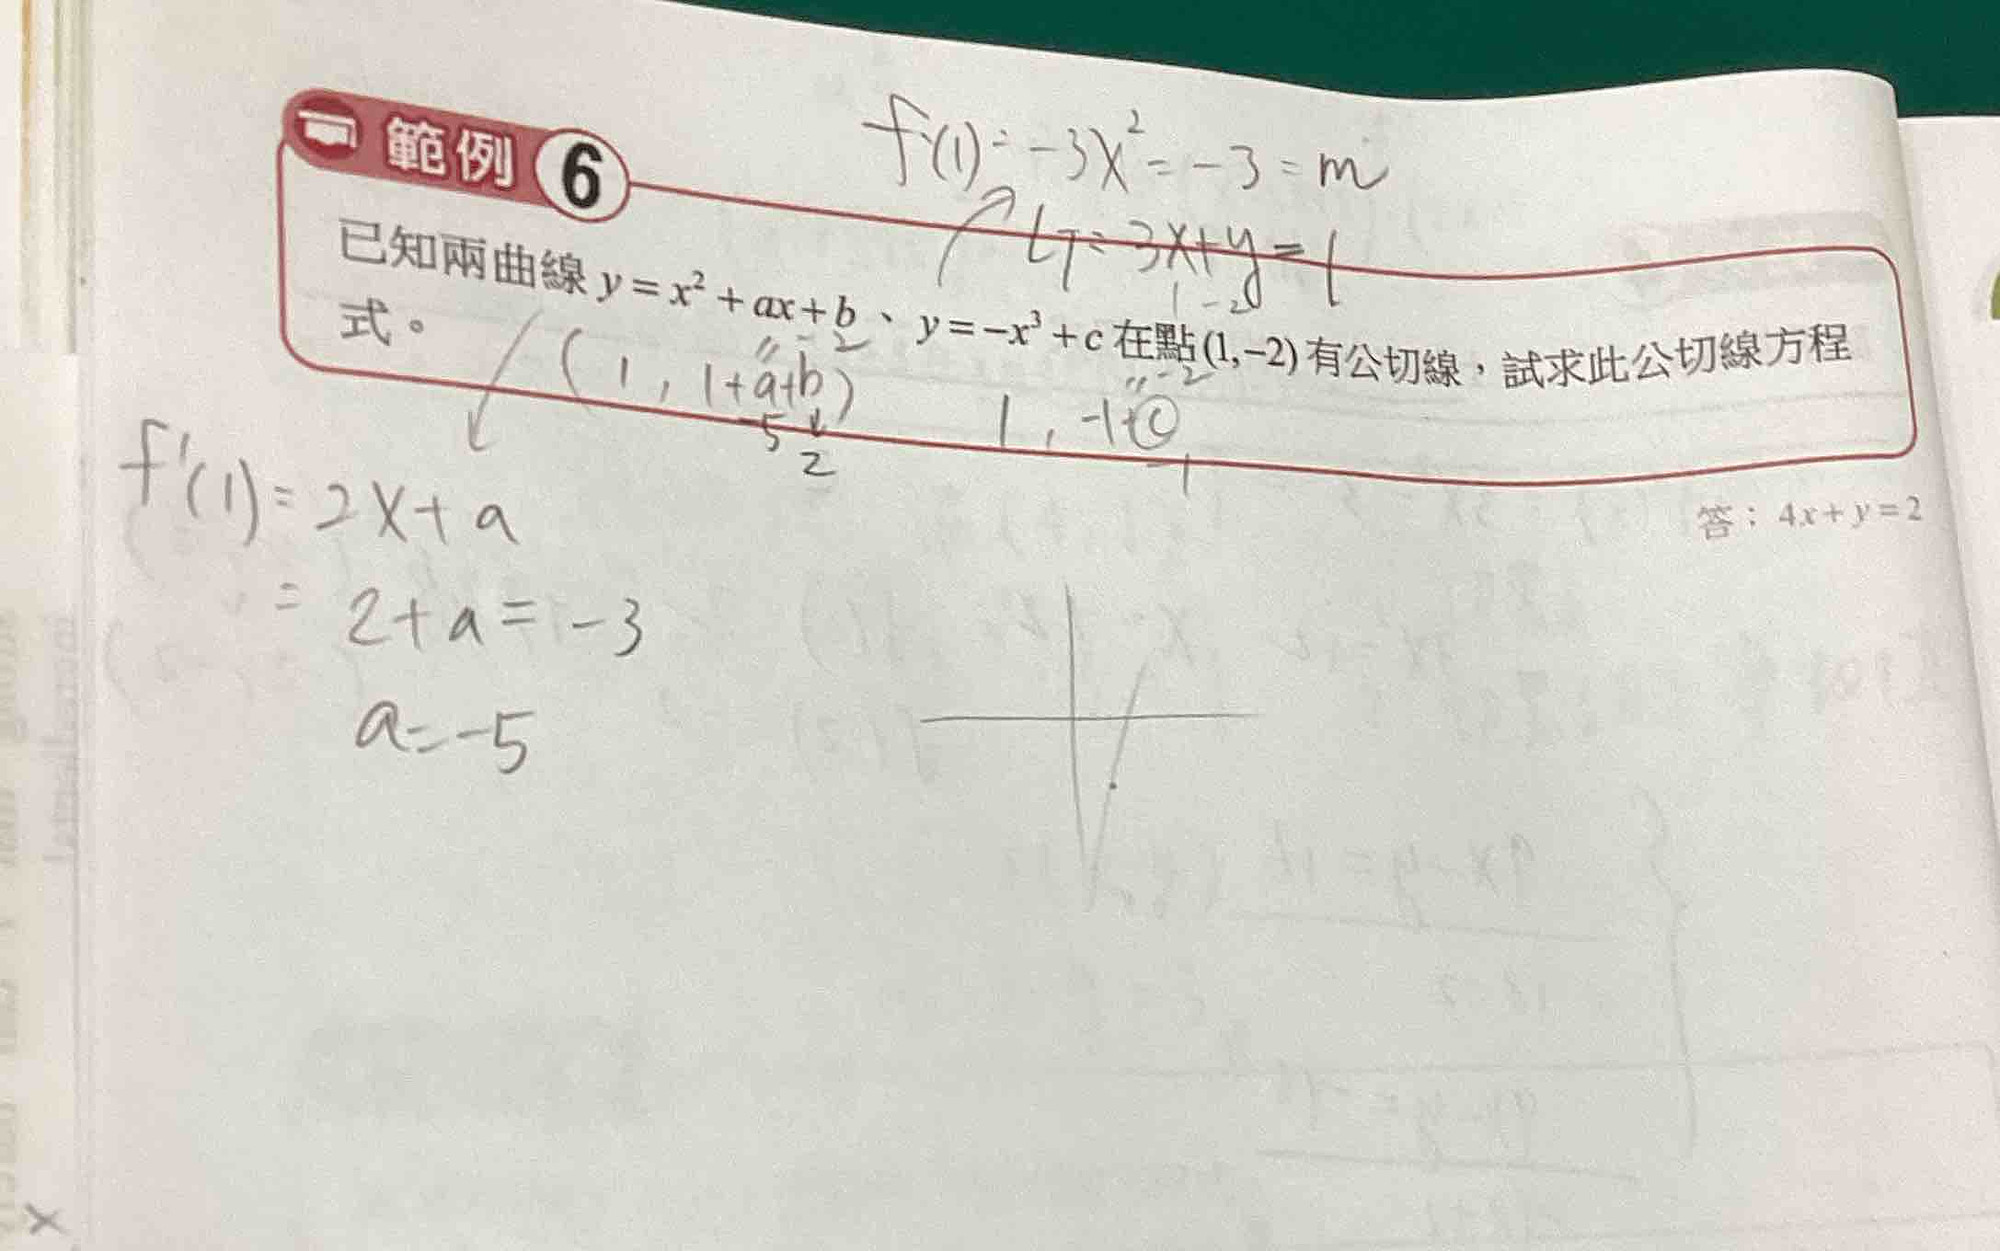 範例 6
f'(1) = -3x² = -3 = m
LT: 3x+y=1
1 -2
已知兩曲線 y=x²+ax+b、y=-x³+c 在點(1,-2)有公切線，試求此公切線方程
式。
(1, 1+a+b)
"-2
-5
2
1, -1+c
"-2
1
答：4x+y=2
f'(1) = 2x+a
= 2+a=-3
a=-5